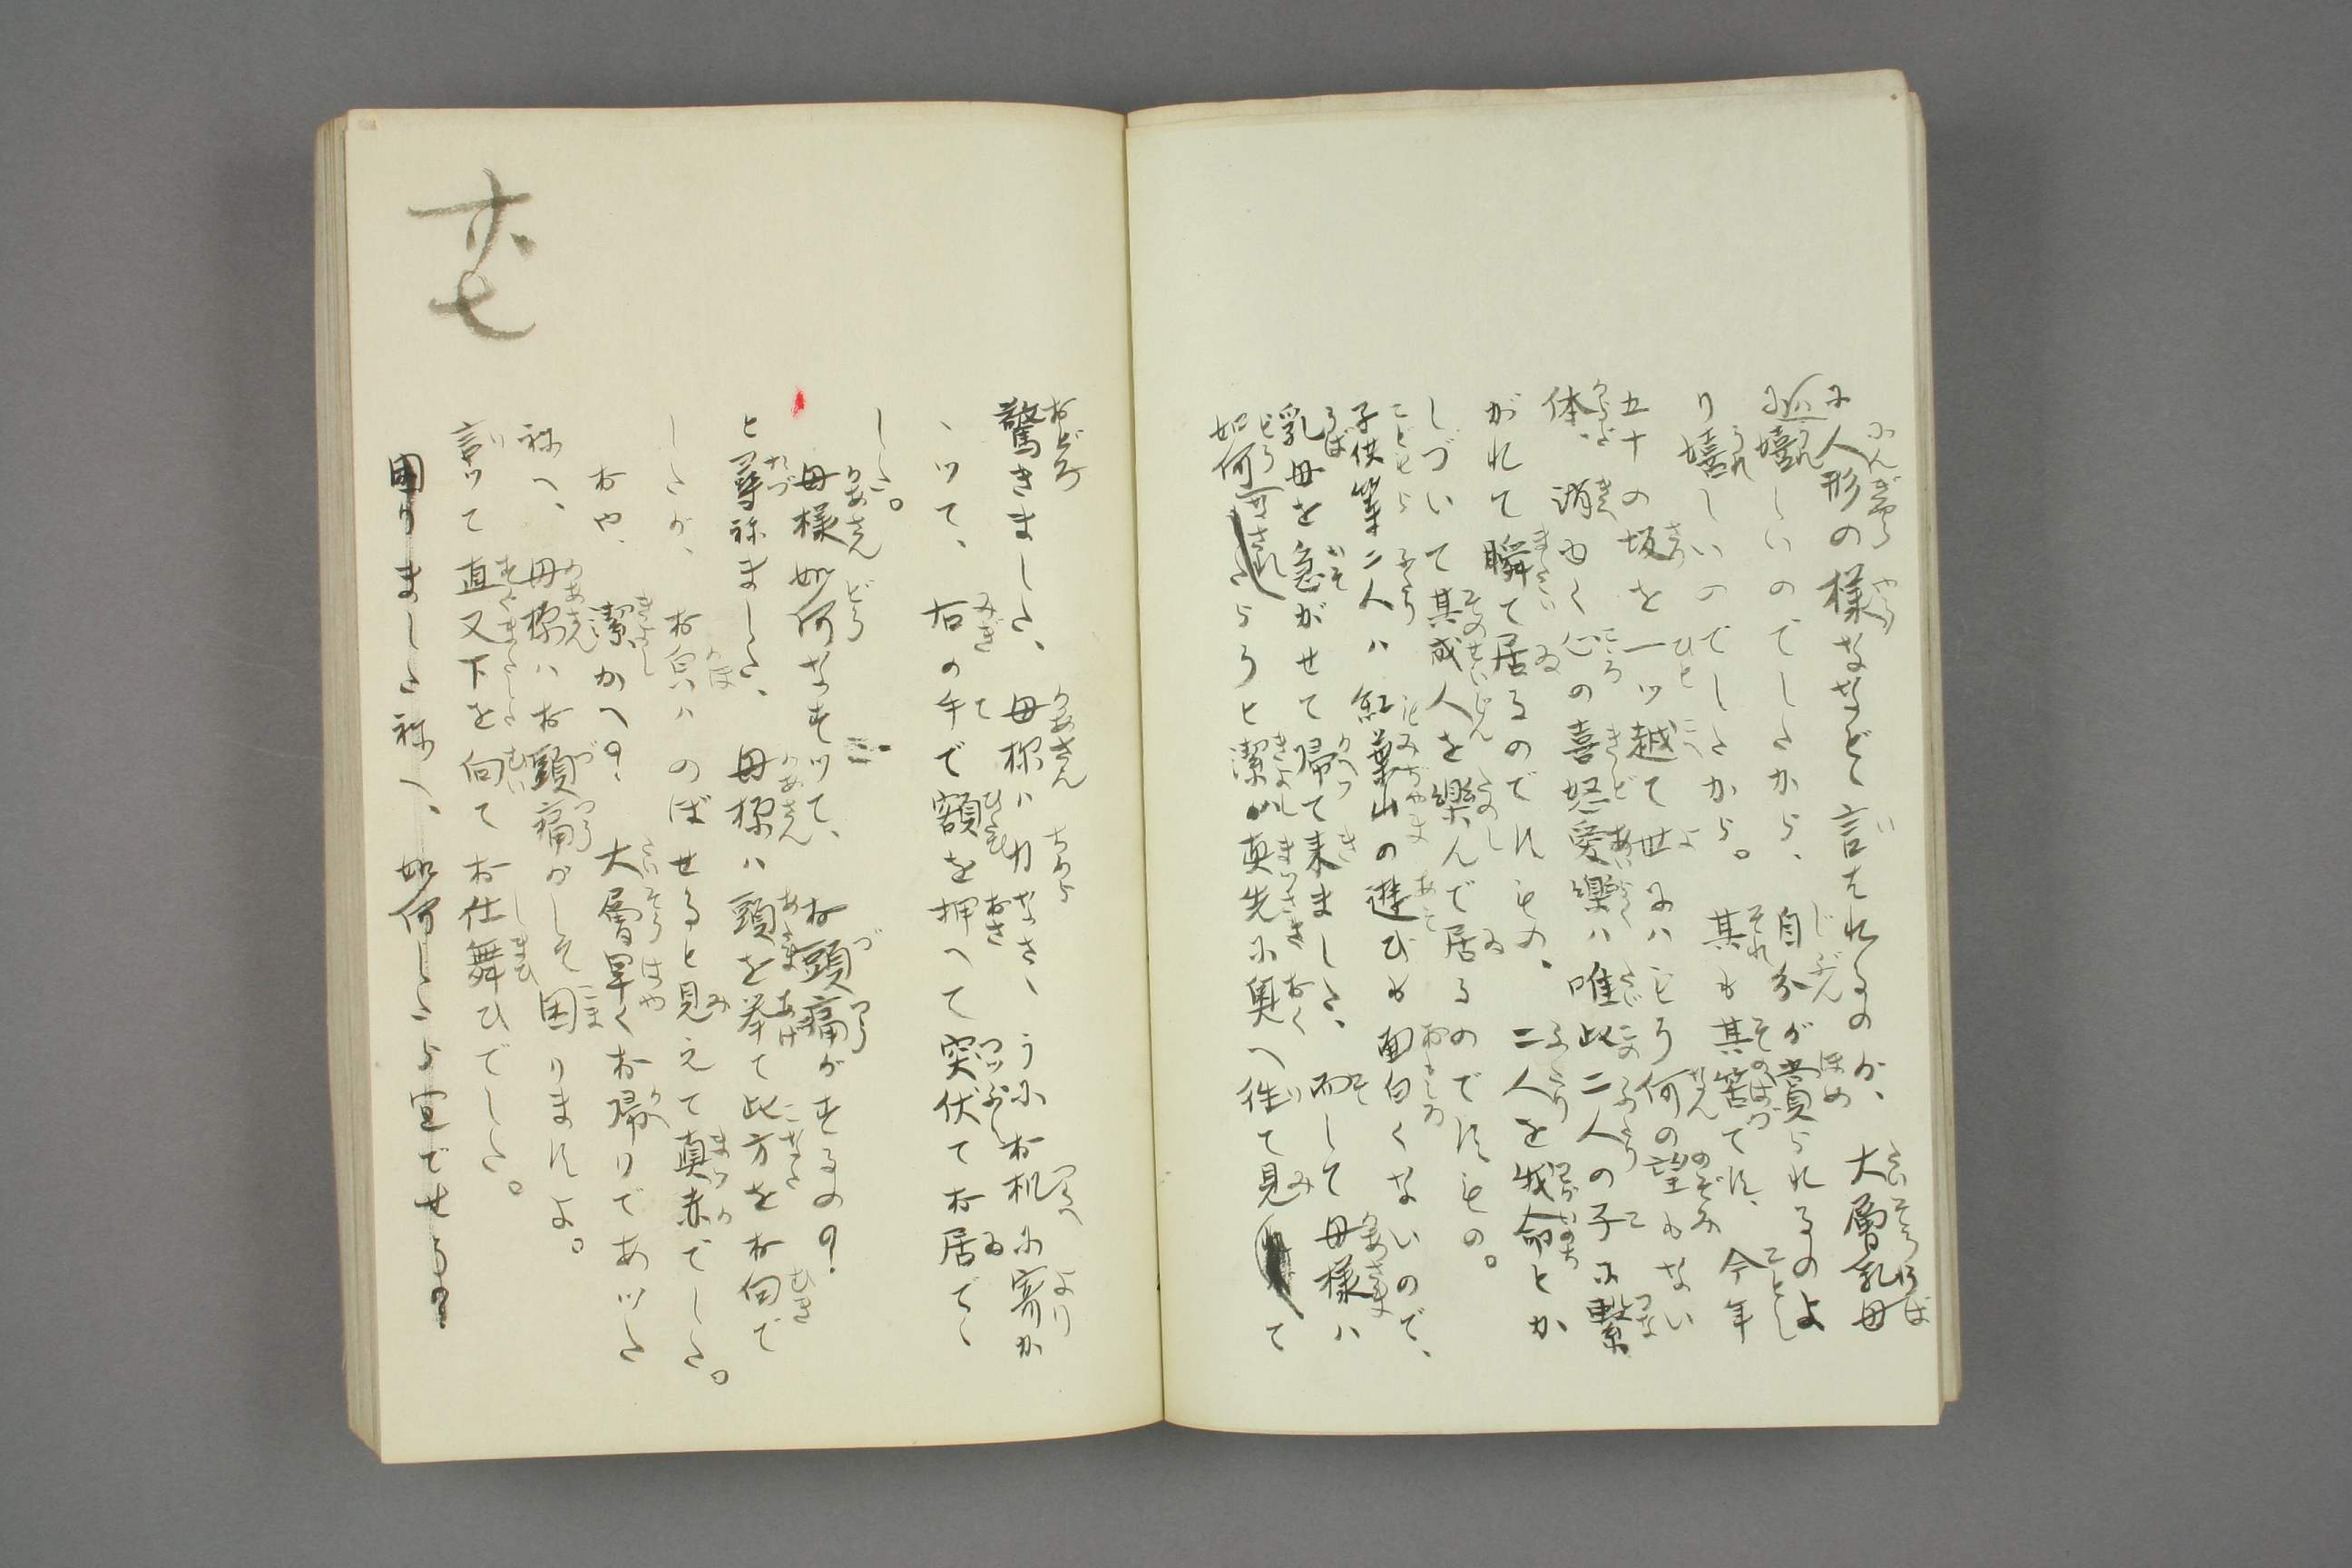 に人形の様ななどゝ言はれるのが、大層乳母
は嬉しいのでしたから、自分が賞られるのよ
り嬉しいのでしたから。其も其筈です、今年
五十の坂を一ツ越て世にハもう何の望もない
体、消ゆく心の喜怒愛樂ハ唯此二人の子に繋
がれて瞬て居るのですもの、二人を我命とか
しづいて其成人を樂んで居るのですもの。
子供等二人ハ紅葉山の遊びも面白くないので、
乳母を急がせて帰て来ました、而して母様ハ
如何なされたらうと潔ハ真先に奥へ往て見て
驚きました、母様ハ力なさゝうにお机に寄か
ゝツて、右の手で額を押へて突伏てお居でゝ
した。
母様如何なすツて、お頭痛がするの?
と尋ねました、母様ハ頭を挙て此方をお向で
したが、お㒵ハのぼせると見えて真赤でした。
おや、潔かへ?大層早くお帰りであツた
ねへ、母様ハお頭痛がして困りますよ。
言ツて直又下を向てお仕舞ひでした。
困りましたねへ、如何したら宜でせう?
六七